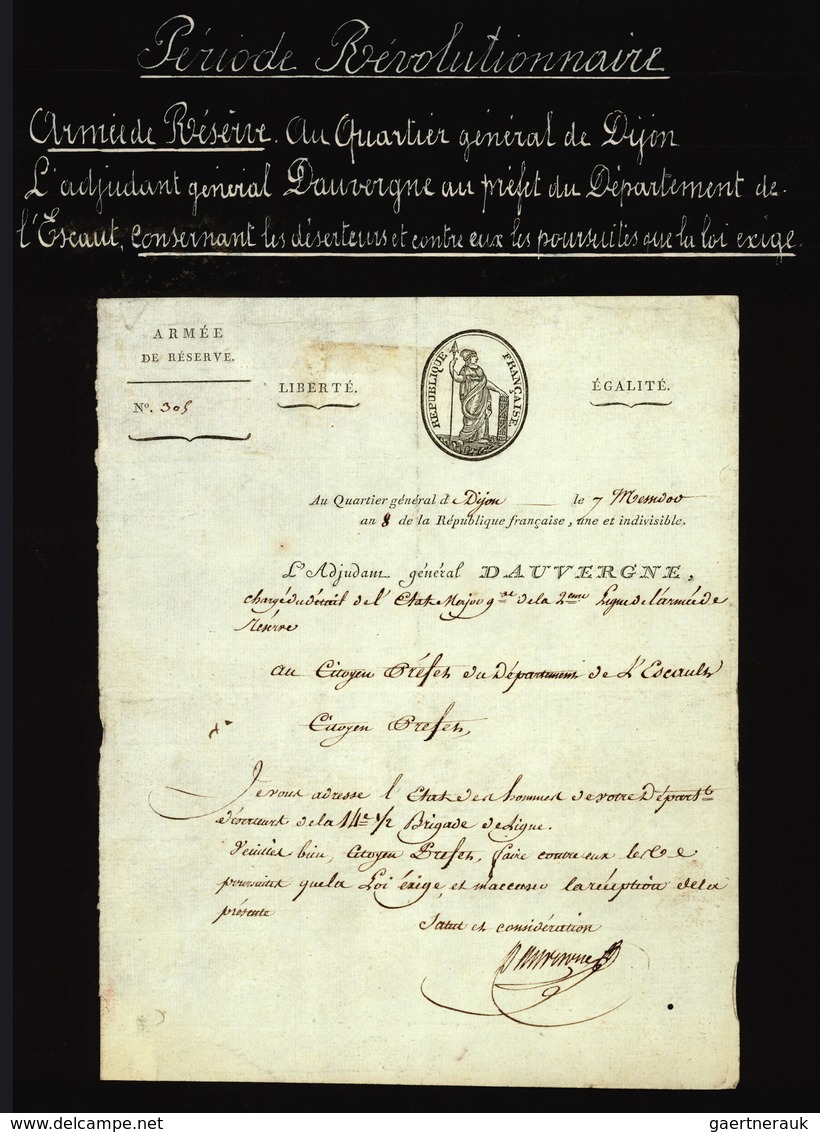 Période Révolutionnaire
Armée de Résérve. Au Quartier général de Dijon
L'adjudant général Dauvergne au préfet du Département de
l'Escaut, consernant les déserteurs et contre eux les poursuites que la loi exige
ARMÉE
DE RÉSERVE.
N°. 305
LIBERTÉ.
RÉPUBLIQUE FRANÇAISE
ÉGALITÉ.
Au Quartier général de Dijon le 7 Messidor
an 8 de la République française, une et indivisible.
L'Adjudant général DAUVERGNE,
chargé du détail de l'Etat Major gal de la 2eme Ligne de l'armée de
réserve
au Citoyen Préfet du Département de L'Escault
Citoyen Préfet,
Je vous adresse l'Etat des hommes de votre Départt
déserteurs de la 14e 1/2 Brigade de Ligne.
Veuillez bien, Citoyen Préfet, faire contre eux les
poursuites que la Loi éxige et m'accuser la réception de la
présente
Salut et considération
Dauvergne
delcampe.net
gaertnerauk